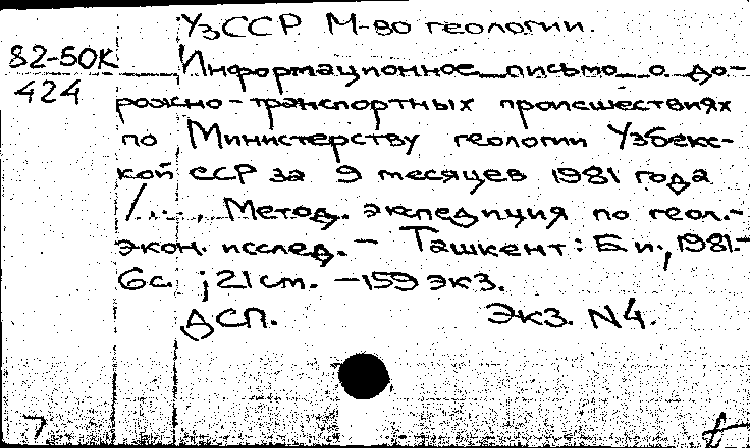 УзССР М-во геологии.
82-50К
424
Информационное письмо о до-
рожно-транспортных происшествиях
по Министерству геологии Узбекс-
кой ССР за 9 месяцев 1981 года
/..., Метод. экспедиция по геол.-
экон. исслед. - Ташкент: Б.и., 1981.-
6с. ; 21 см. - 159 экз.
ДСП. Экз. N4.
7